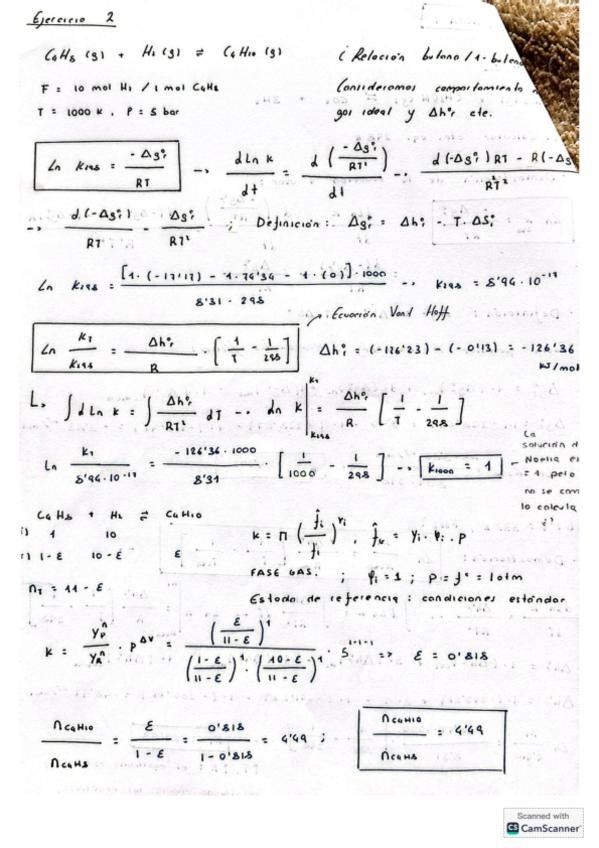 Ejercicio 2
C4H8 (g) + H2 (g) ⇌ C4H10 (g)
¿ Relación butano / 1-buteno
F = 10 mol H2 / 1 mol C4H8
Consideramos comportamiento
T = 1000 K, P = 5 bar
gas ideal y Δh°r cte.
Ln K298 = -Δg°r / RT → d Ln K / dt = d (-Δg°r / RT) / dt → d(-Δg°r) RT - R(-Δg / R²T²
→ d(-Δg°r) / RT - Δg°r / RT² ; Definición: Δg°r = Δh°r - T·ΔS°r
Ln K298 = [1·(-17'17) - 1·74'34 - 1·(0)]·1000 / 8'31·298 → K298 = 8'94·10^-17
Ecuación Vant Hoff
Ln KT / K298 = Δh°r / R · [1/T - 1/298]
Δh°r = (-126'23) - (-0'13) = -126'36
KJ/mol
L, ∫ d Ln K = ∫ Δh°r / RT² dT → Ln K |KT K298 = Δh°r / R [1/T - 1/298]
Ln KT / 8'94·10^-17 = -126'36·1000 / 8'31 · [1/1000 - 1/298] → K1000 = 1
La
solución d
Noelia es
= 1 pero
no se com
lo calcula
C4H8 + H2 ⇌ C4H10
i) 1 10
1-ε 10-ε ε
nT = 11 - ε
K = Π (f̂i / f°i)^νi , f̂i = yi · φi · P
FASE GAS. ; φi = 1 ; P = f° = 1 atm
Estado de referencia: condiciones estándar
K = yP^n / yR^n · P^Δν = (ε / 11-ε)^1 / (1-ε / 11-ε)^1 · (10-ε / 11-ε)^1 · 5^1-1-1 => ε = 0'818
nC4H10 / nC4H8 = ε / 1-ε = 0'818 / 1-0'818 = 4'49 ;
nC4H10 / nC4H8 = 4'49
Scanned with
CS CamScanner